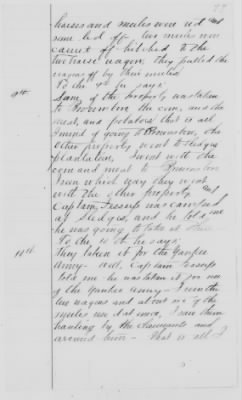 77
horses and mules were rid and
some led off. Two mules was
carried off hitched to the
two horse wagon, they pulled the
wagons off by their mules
To the 9th he says:
9th.
Some of the property was taken
to Brownstown the corn, and the
meat, and potatoes that is all
I mind of going to Brownstown, the
other property went to Sledges
plantation, I went with the
corn and meat to Brownstown
I seen which way they went
with the other property, and
Captain Jessup was camped
at Sledges, and he told me
he was going to take it
To the 10th he says:
10th.
They taken it for the Yankee
Army - well, Captain Jessup
told me he was taken it for use
of the Yankee Army - I seen the
two wagons and about six of the
mules used at once, I saw them
hauling by the
around him - that is all I